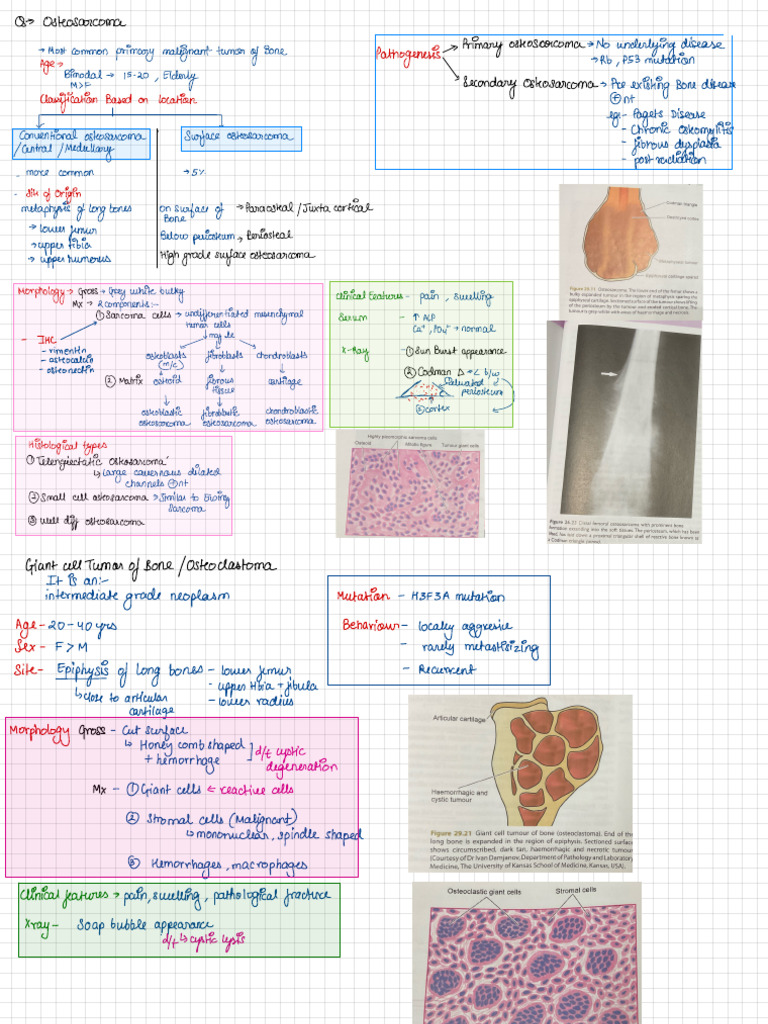 Q→ Osteosarcoma
→ Most common primary malignant tumor of Bone
Age →
Bimodal → 15-20, Elderly
M>F
Classification Based on location
Conventional osteosarcoma
/Central / Medullary
- more common
- Site of Origin
metaphysis of long bones
→ lower femur
→ upper tibia
→ upper humerus
Surface osteosarcoma
→ 5%
on surface of → Paraosteal / Juxta cortical
Bone
Below periosteum → Periosteal
High grade surface osteosarcoma
Pathogenesis
→ Primary osteosarcoma → No underlying disease
→ Rb, P53 mutation
Secondary Osteosarcoma → Pre existing Bone disease
⊕nt
eg:- Pagets Disease
- Chronic Osteomylitis
- fibrous dysplasia
- post radiation
Figure 24.31 Distal femoral osteosarcoma with prominent bone
Morphology → Gross → Grey white bulky
Mx → 2 components:-
① Sarcoma cells → undifferentiated mesenchymal
tumor cells
may be
osteoblasts fibroblasts chondroblasts
(m/c)
② Matrix osteoid fibrous cartilage
tissue
osteoblastic fibroblastic chondroblastic
osteosarcoma osteosarcoma osteosarcoma
- IHC
- vimentin
- osteocalcin
- osteonectin
Clinical Features - pain, swelling
Serum - ↑ ALP
Ca⁺, PO₄⁻ → normal
X-Ray ① Sun Burst appearance
② Codman Δ → ∠ b/w
① elevated
periosteum
② cortex
Histological types
① Telengiectatic Osteosarcoma
↳ Large cavernous dilated
channels ⊕nt
② Small cell osteosarcoma → Similar to Ewing
Sarcoma
③ well diff osteosarcoma
Highly pleomorphic sarcoma cells
Osteoid Mitotic figure Tumour giant cells
Giant cell Tumor of Bone / Osteoclastoma
It is an:-
intermediate grade neoplasm
Age - 20-40 yrs
Sex - F>M
Site - Epiphysis of Long bones - lower femur
- upper tibia + fibula
- lower radius
↳ close to articular
cartilage
Mutation - H3F3A mutation
Behaviour - locally aggresive
- rarely metastisizing
- Recurrent
Morphology Gross - Cut surface
↳ Honey comb shaped
+ hemorrhage
d/t cystic
degeneration
Mx - ① Giant cells ← reactive cells
② Stromal cells (Malignant)
↳ mononuclear, spindle shaped
③ Hemorrhages, macrophages
Clinical features → pain, swelling, pathological fracture
Xray - Soap bubble appearance
d/t ↳ cystic lysis
Articular cartilage
Haemorrhagic and
cystic tumour
Figure 29.21 Giant cell tumour of bone (osteoclastoma). End of the
long bone is expanded in the region of epiphysis. Sectioned surface
shows circumscribed, dark tan, haemorrhagic and necrotic tumour
(Courtesy of Dr Ivan Damjanov, Department of Pathology and Laboratory
Medicine, The University of Kansas School of Medicine, Kansas, USA).
Osteoclastic giant cells Stromal cells